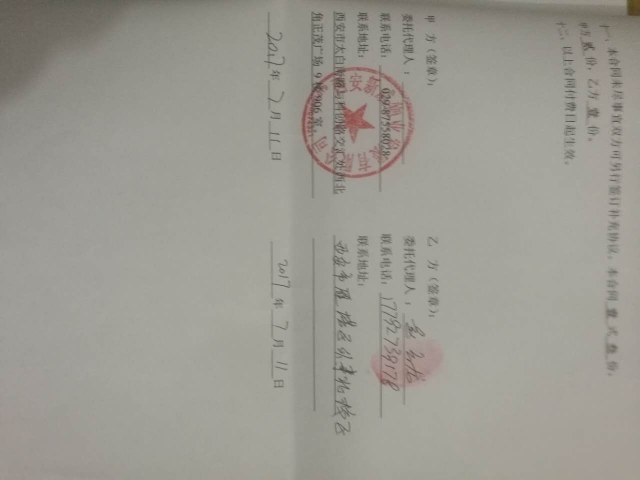 十一、本合同未尽事宜双方可另行签订补充协议。本合同 壹 式 叁 份,
甲方 贰 份,乙方 壹 份。
十二、以上合同付费日起生效。
甲 方(签章):
委托代理人:
联系电话: 029-87558028
联系地址:
西安市太白南路与科创路交汇处西北
角正茂广场
2017 年 7 月 11 日
乙 方(签章):
委托代理人:
联系电话: 17792739178
联系地址:
西安市雁塔区
2017 年 7 月 11 日